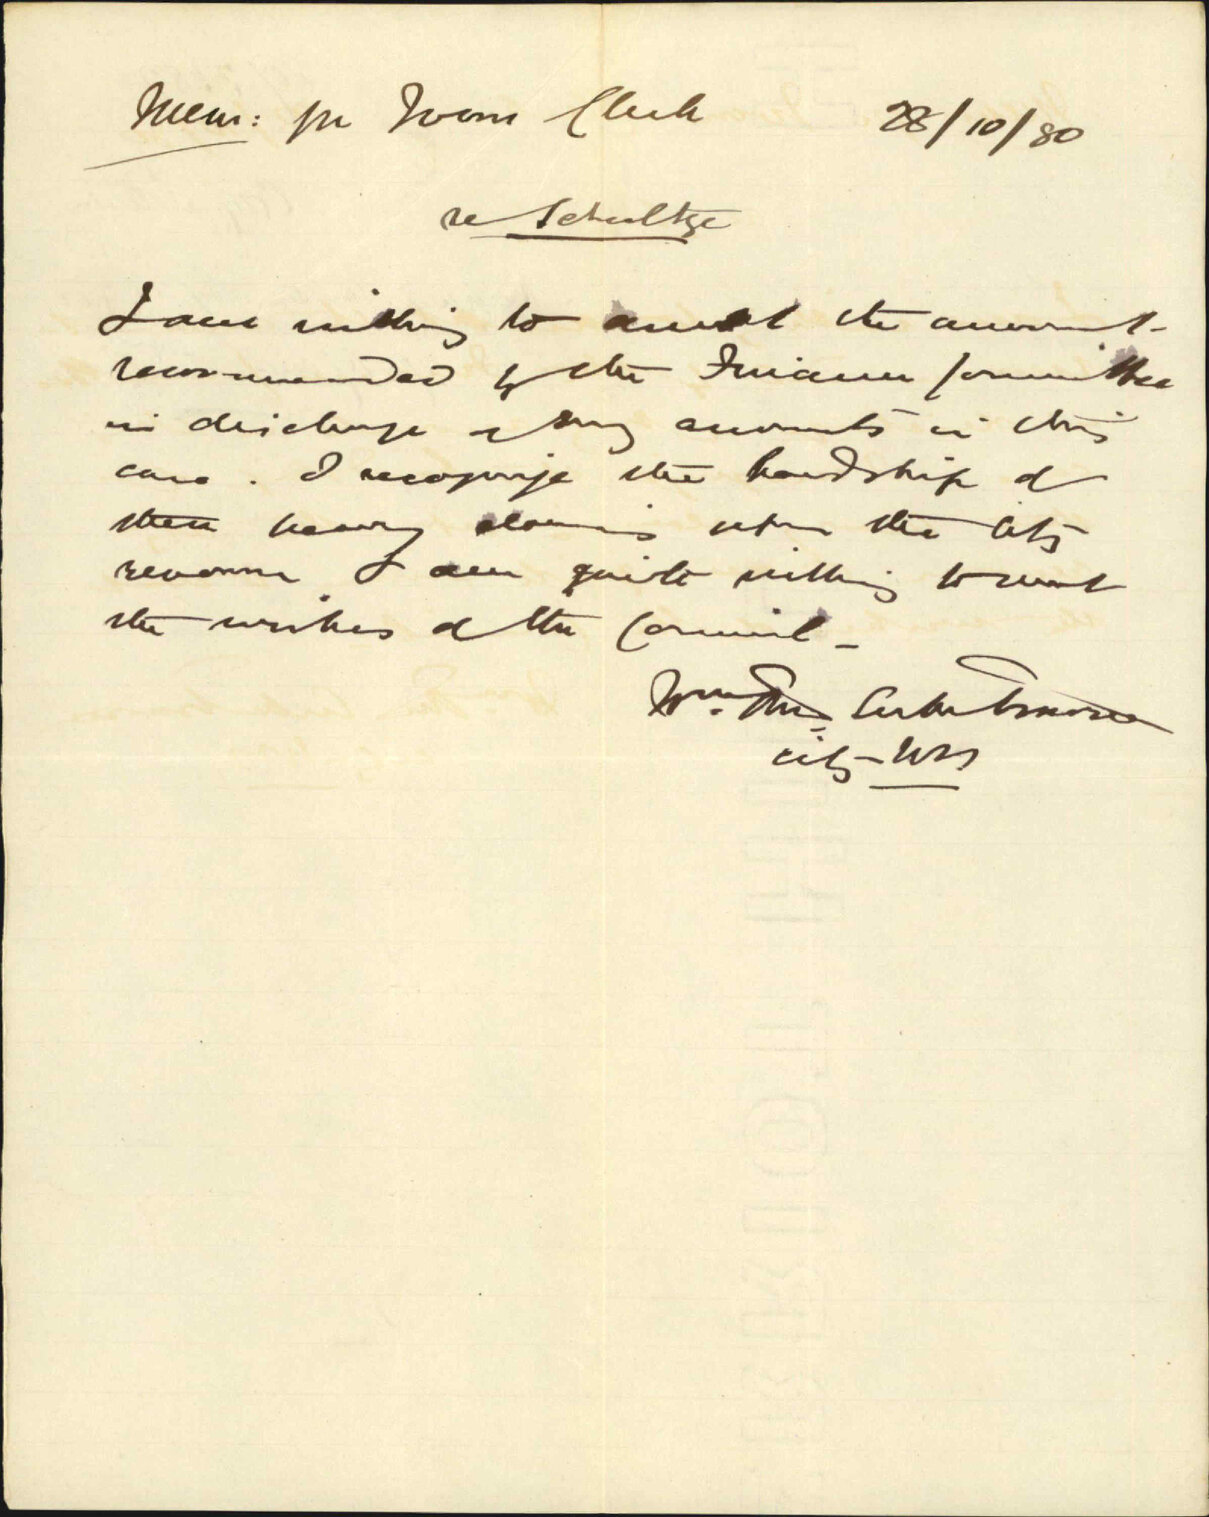 Mem: for Town Clerk 28/10/80
re Schultze
I am willing to accept the amount
recommended by the Finance Committee
in discharge of my accounts in this
case. I recognize the hardship of
these heavy claims upon the City
revenue & am quite willing to meet
the wishes of the Council –
Wm.
City